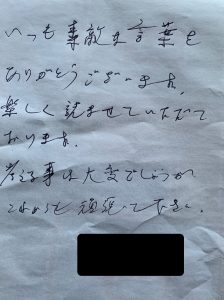 いつも素敵な言葉を
ありがとうございます。
楽しく読ませていただいて
おります。
考える事は大変でしょうが
これからも頑張って下さい。